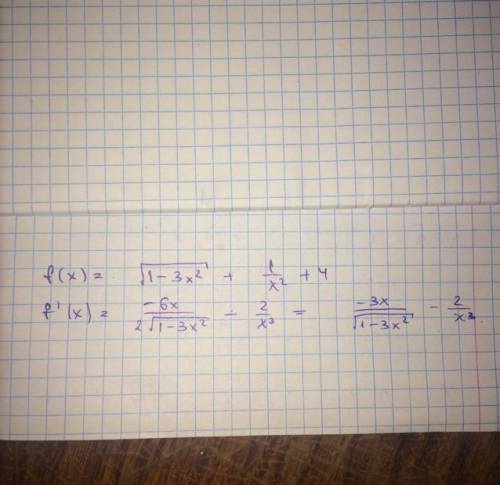 f(x) = √(1-3x²) + 1/x² + 4
f'(x) = -6x/(2√(1-3x²)) - 2/x³ = -3x/√(1-3x²) - 2/x³